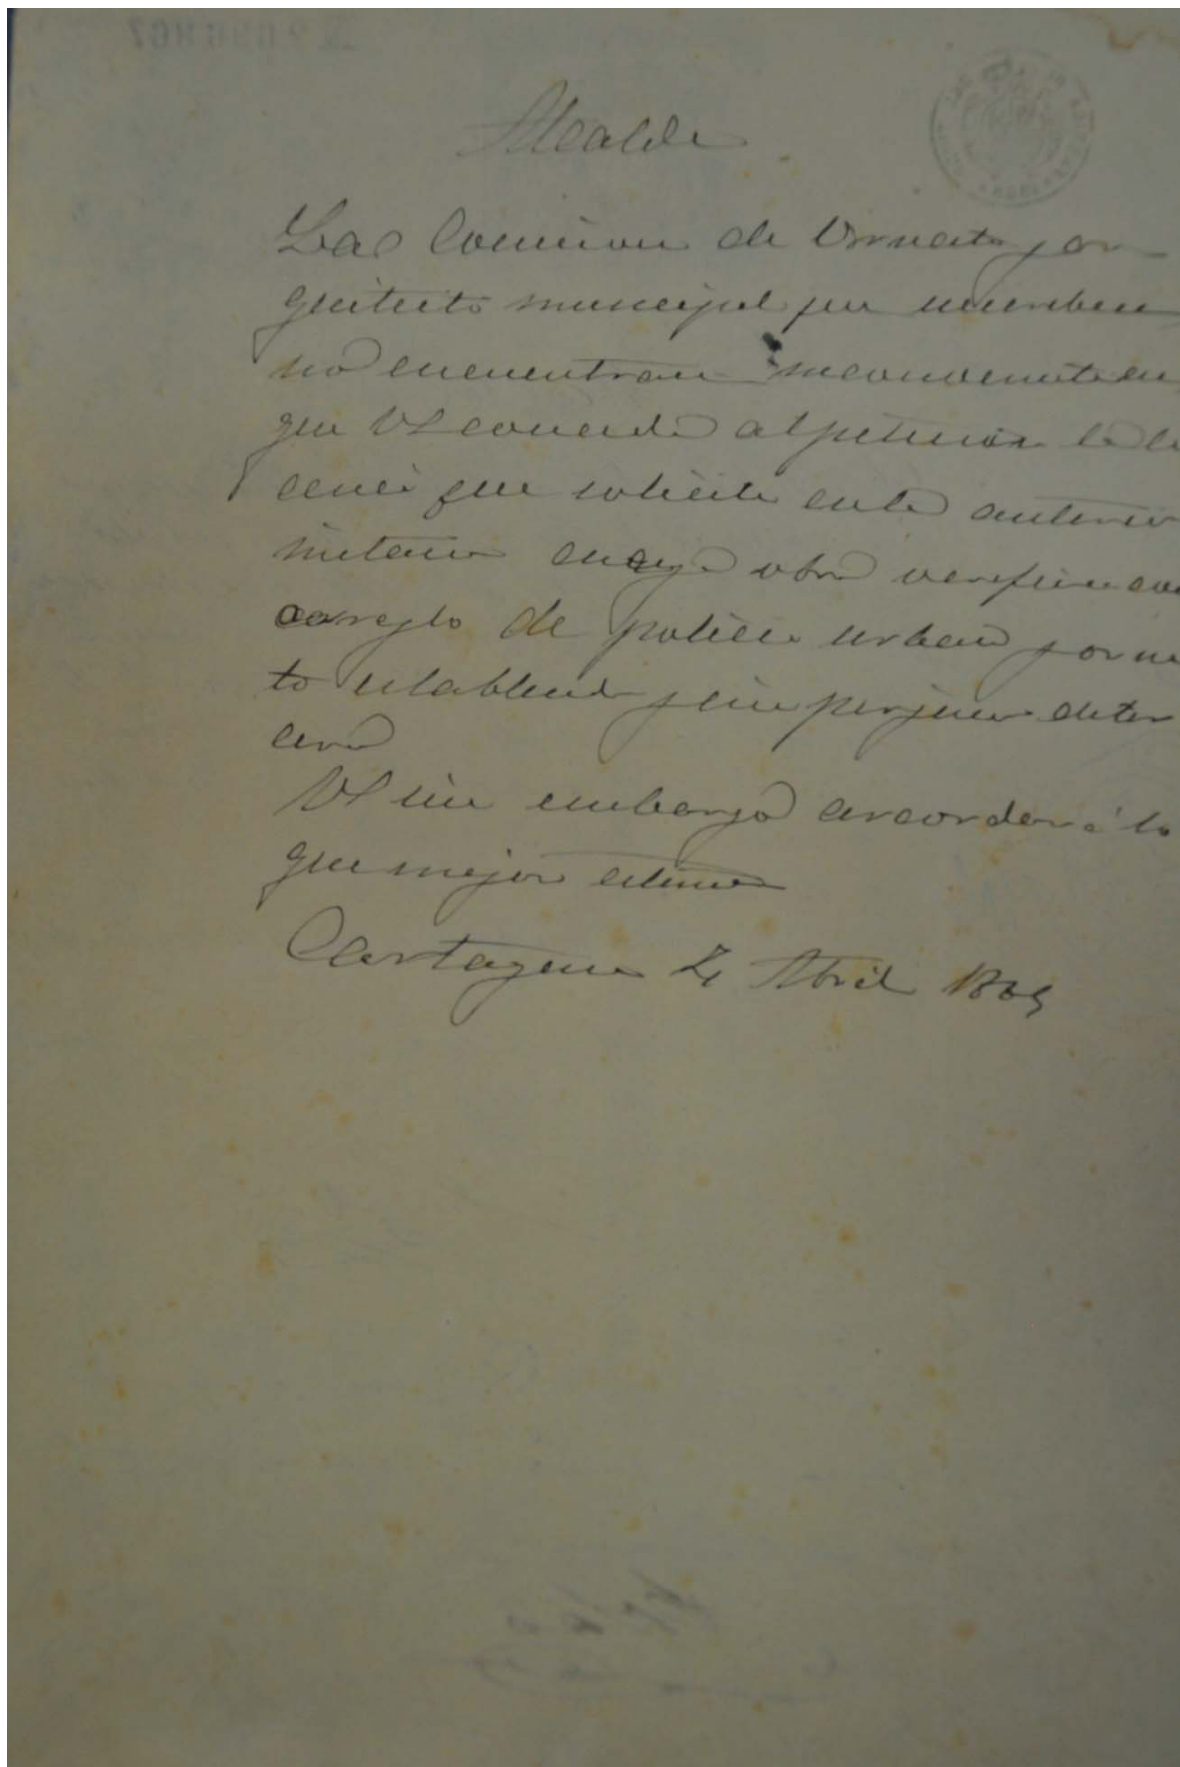 Alcalde
La Comision de Ornato y ar
quitecto municipal que suscriben
no encuentran inconveniente en
que VS conceda al peticion la li
cencia que solicita en la anterior
instancia cuya obra verificara con
arreglo de policia urbana y orna
to establecida y sin perjuicio de ter
cero
VS sin embargo acordará lo
que mejor estime
Cartagena 4 Abril